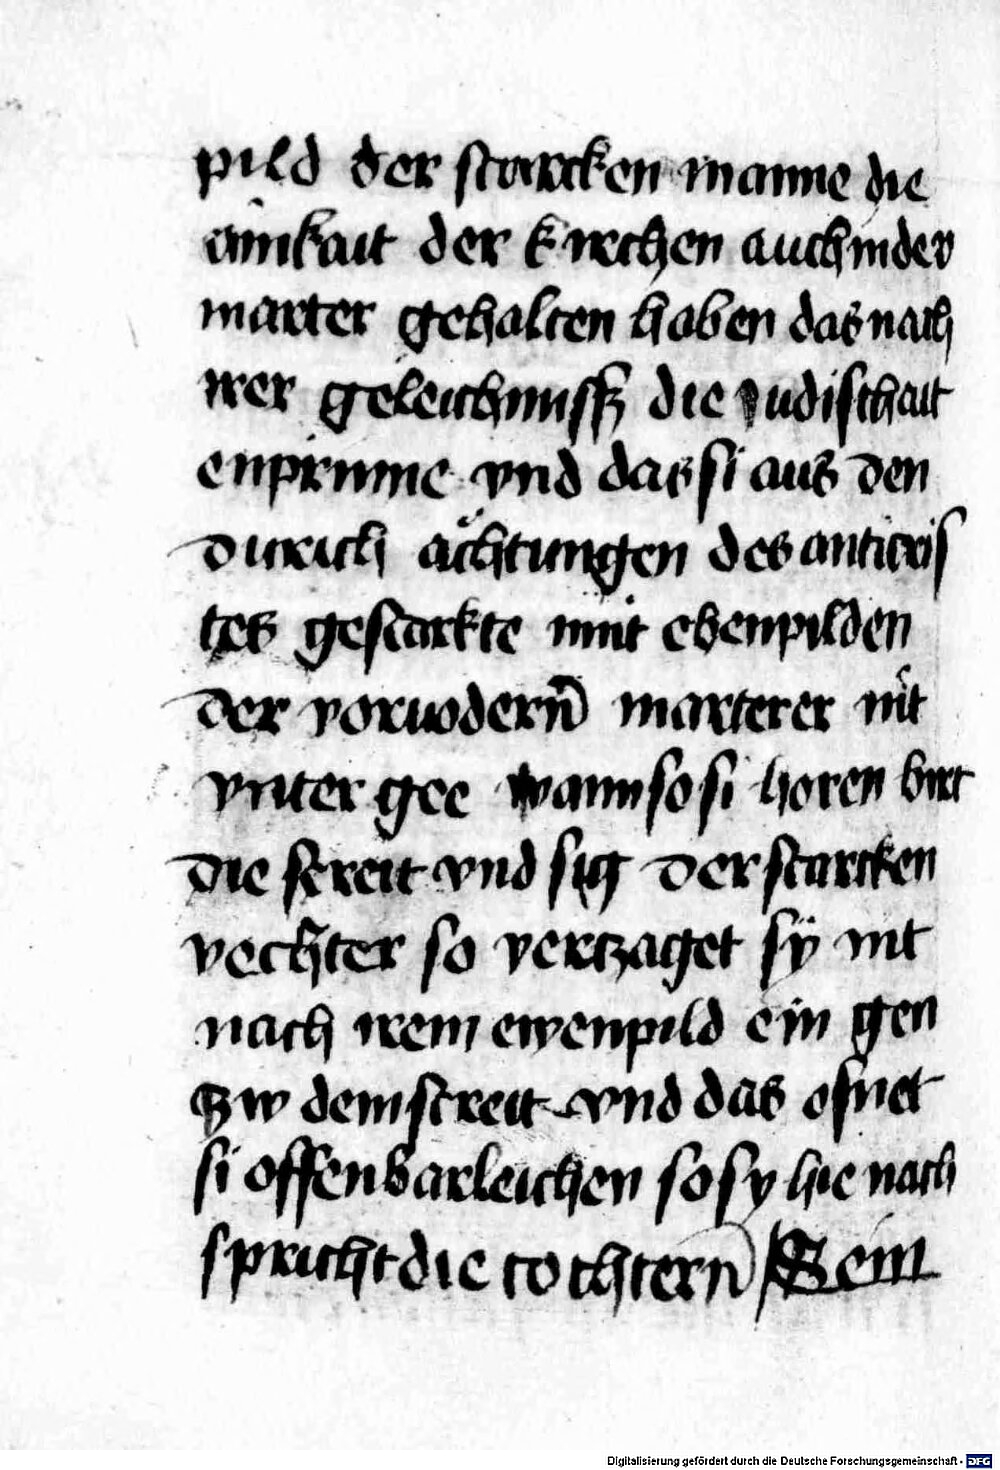 pild der starcken manne die
ainkait der kirchen auch in der
marter gehalten haben das nach
irer geleichnuss die iudischait
enprinne vnd das si aus den
durich ächtungen des anticris
tes gestarkte mit ebenpilden
der voruodern̄ marterer nit
vnter gee wann so si horen birt
die streit vnd sig der starcken
vechter so vertzaget sÿ nit
nach irem ewenpild ein gen
zw dem streit vnd das ofnet
si offenbarleichen so sy hie nach
spricht die tochtern̄ Sein
Digitalisierung gefördert durch die Deutsche Forschungsgemeinschaft - DFG